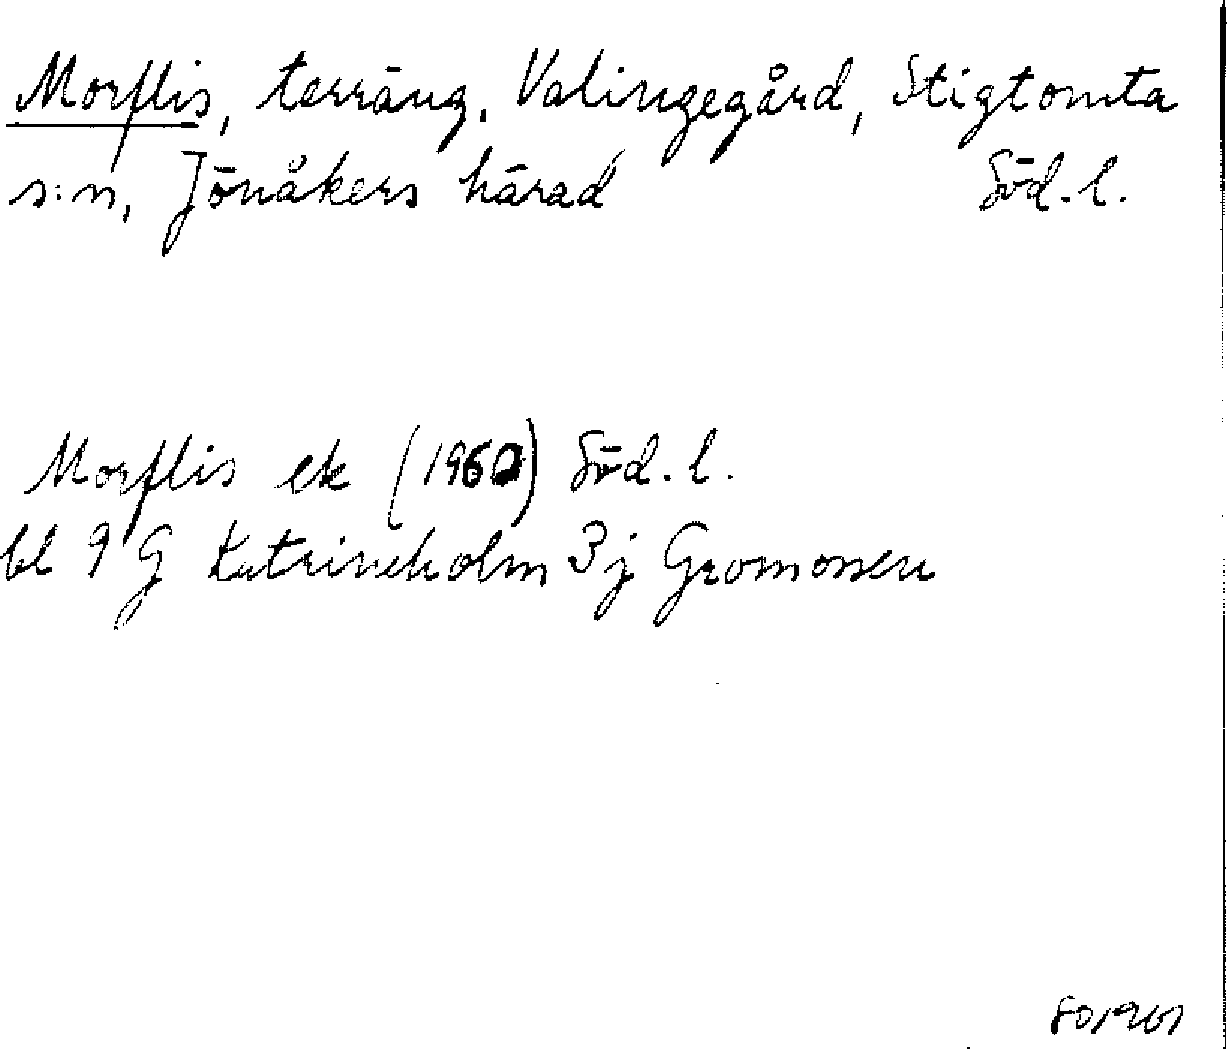 Morflis, terräng, Valingegård, Stigtomta
s:n, Jönåkers härad Söd. l.
Morflis ek (1960) Söd. l.
bl 9 G Katrineholm 3j Gromossen